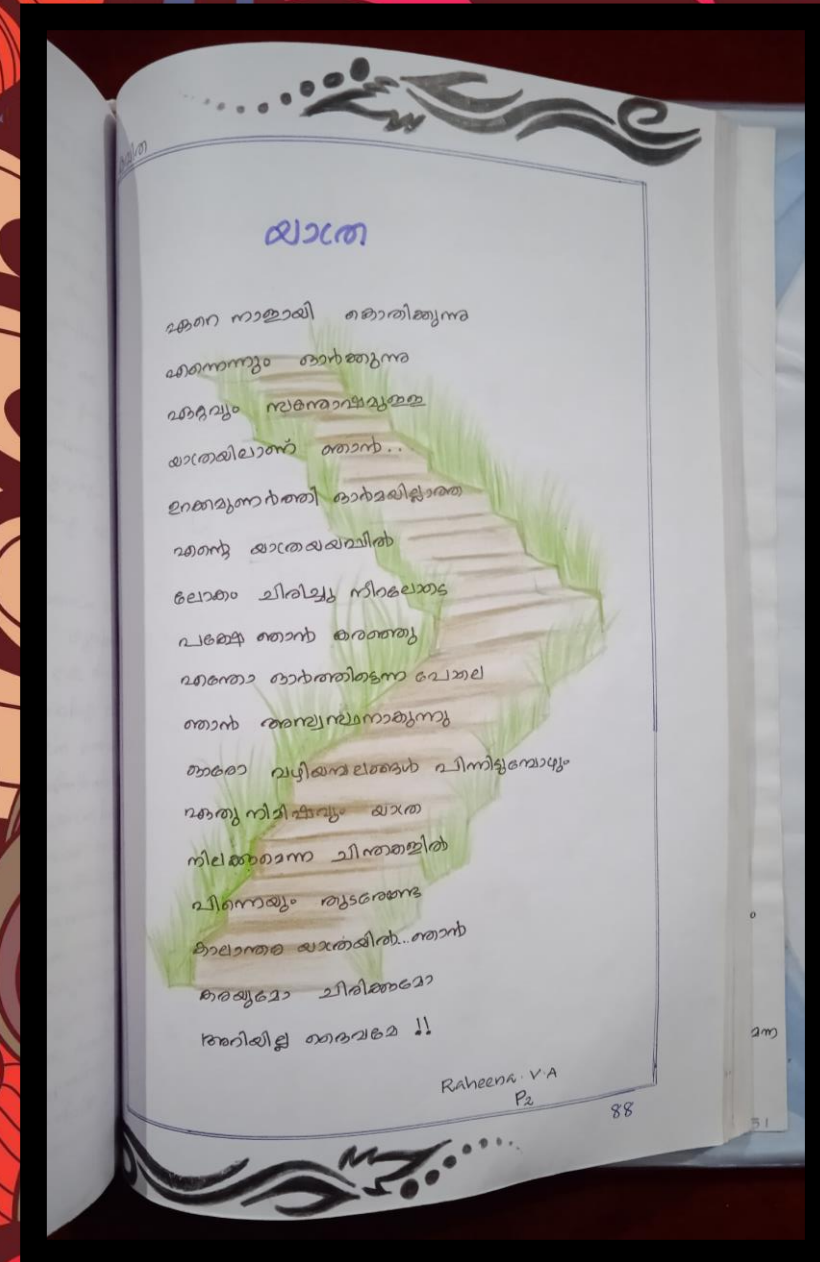 കവിത
യാത്ര
ഏറെ നാളായി കൊതിക്കുന്നു
എന്നെന്നും ഓർക്കുന്നു
ഏറ്റവും സന്തോഷമുള്ള
യാത്രയിലാണ് ഞാൻ..
ഉറക്കമുണർത്തി ഓർമയില്ലാത്ത
എന്റെ യാത്രയയപ്പിൽ
ലോകം ചിരിച്ചു നിറലോടെ
പക്ഷേ ഞാൻ കരഞ്ഞു
എന്തോ ഓർത്തിട്ടെന്ന പോലെ
ഞാൻ അസ്വസ്ഥനാകുന്നു
ഓരോ വഴിയമ്പലങ്ങൾ പിന്നിട്ടുമ്പോഴും
ഏതു നിമിഷവും യാത്ര
നിലക്കാമെന്ന ചിന്തകളിൽ
പിന്നെയും തുടരേണ്ട
കാലാന്തര യാത്രയിൽ...ഞാൻ
കരയുമോ ചിരിക്കുമോ
അറിയില്ല ദൈവമേ !!
Raheena. V.A
P2
88
മന്ന
31